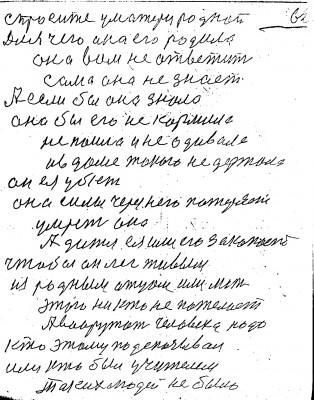 спросите у матери родной 62
Для чего она его родила
она вам не ответит
сама она не знает
А если бы она знала
она бы его не кормила
не поила и не одивала
и в доме такого не держала
он ея убьет
она силы через него потеряет
умрет она
А дитя ея или его закопает
чтобы он лег живым
из родным отцом или мат
этого никто не пожелает
А человека надо
кто этому
или кто был учителем
таких людей не было